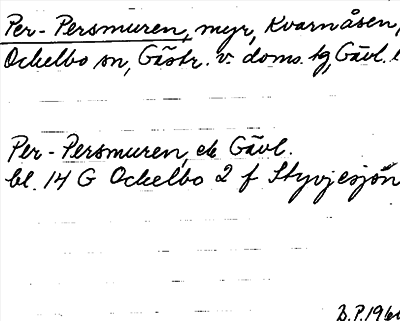 Per-Persmuren, myr, Kvarnåsen,
Ockelbo sn, Gästr. v. doms. tg, Gävl. l
Per-Persmuren, ek Gävl.
bl. 14 G Ockelbo 2 f Styvjesjön
B.P. 196